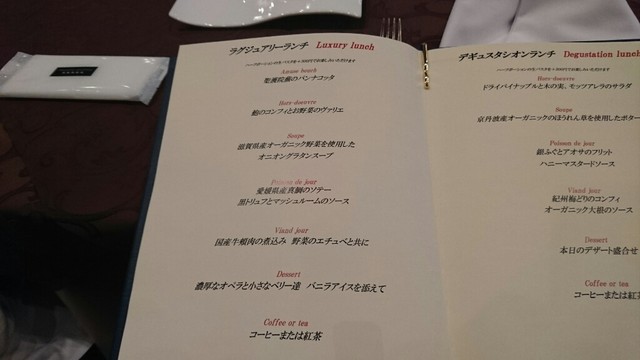 ラグジュアリーランチ Luxury lunch
Amuse bouch
Hors-doeuvre
鮑のコンフィとお野菜のヴァリエ
Soupe
滋賀県産オーガニック野菜を使用した
オニオングラタンスープ
Poisson de jour
愛媛県産真鯛のソテー
黒トリュフとマッシュルームのソース
Viand jour
国産牛頬肉の煮込み 野菜のエチュベと共に
Dessert
濃厚なオペラと小さなベリー達 バニラアイスを添えて
Coffee or tea
コーヒーまたは紅茶
デギュスタシオンランチ Degustation lunch
Hors-doeuvre
ドライパイナップルと木の実、モッツアレラのサラダ
Soupe
京丹波産オーガニックのほうれん草を使用したポター
Poisson de jour
銀ふぐとアオサのフリット
ハニーマスタードソース
Viand jour
紀州梅どりのコンフィ
オーガニック大根のソース
Dessert
本日のデザート盛合せ
Coffee or tea
コーヒーまたは紅茶